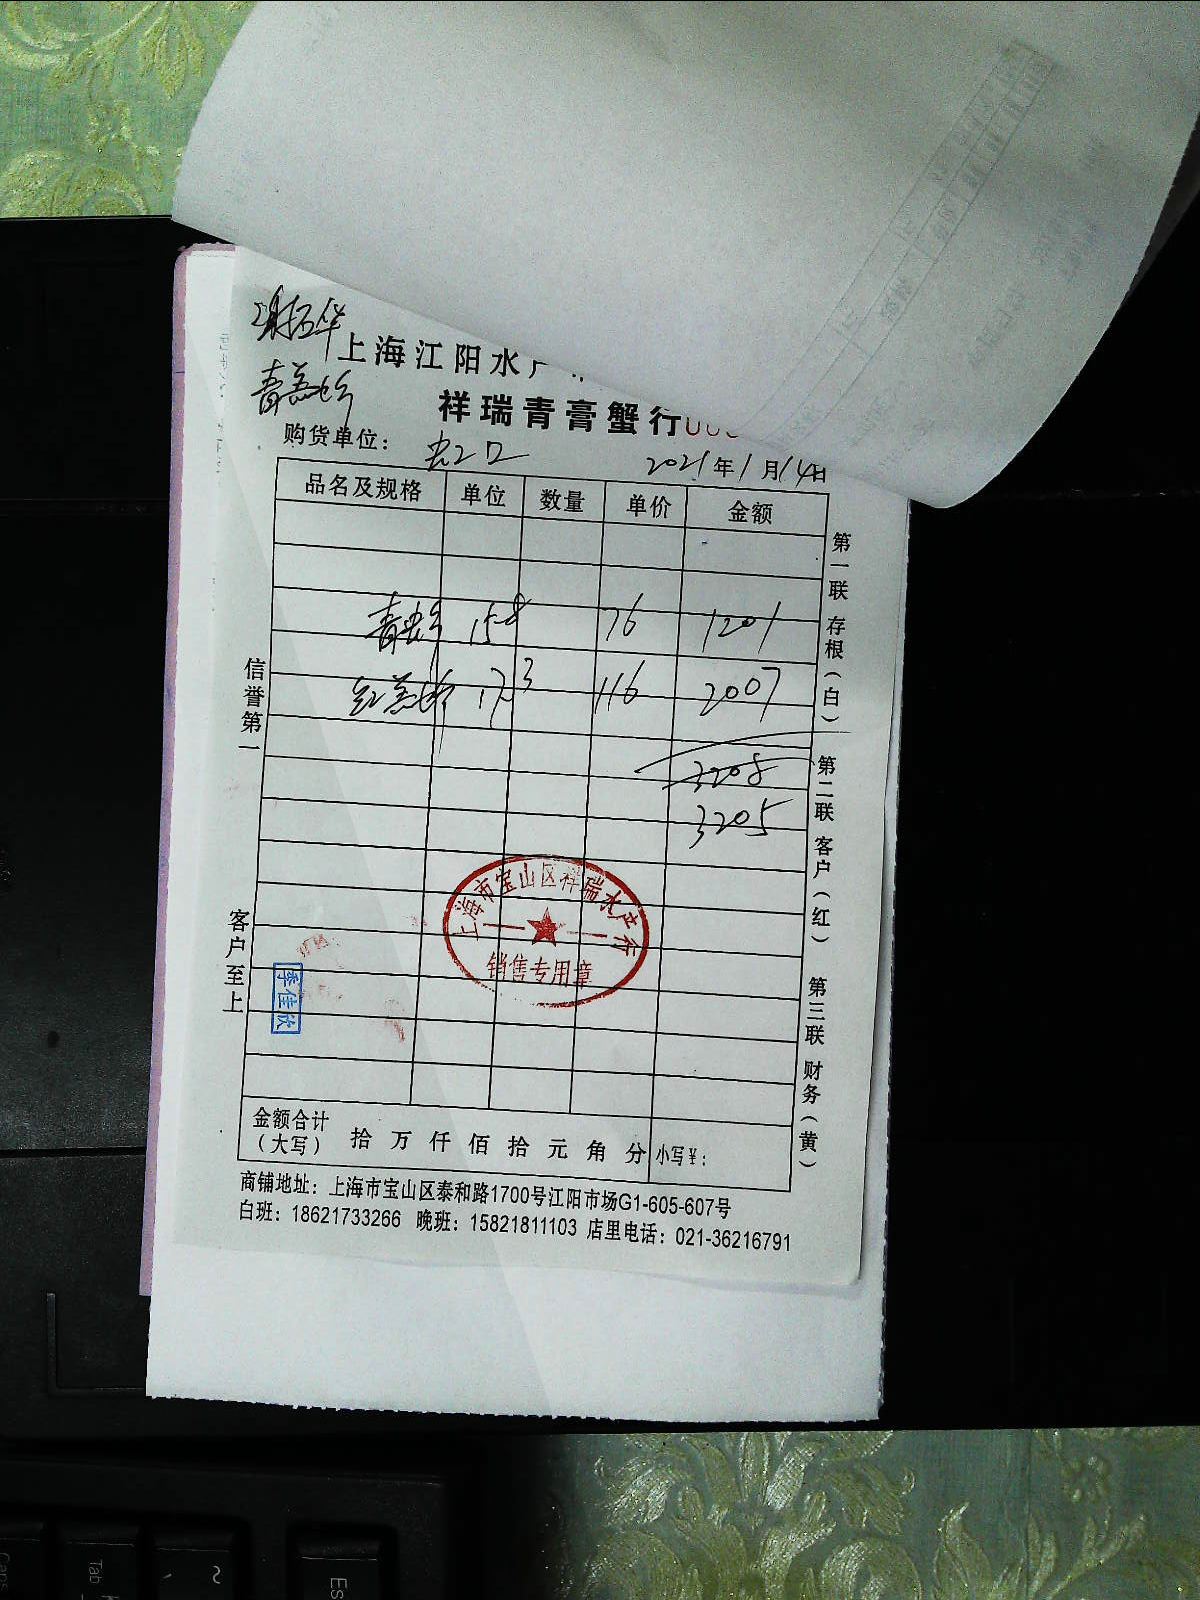 上海江阳水产
祥瑞青膏蟹行
购货单位： 虹口 2021年1月14日
品名及规格 单位 数量 单价 金额
青 15.8 76 1201
红羔 17.3 116 2007
3208
3205
信誉第一
客户至上
第一联 存根（白） 第二联 客户（红） 第三联 财务（黄）
上海市宝山区祥瑞水产行
销售专用章
季佳欣
金额合计（大写） 拾 万 仟 佰 拾 元 角 分 小写¥：
商铺地址：上海市宝山区泰和路1700号江阳市场G1-605-607号
白班：18621733266 晚班：15821811103 店里电话：021-36216791
Tab
~
Esc